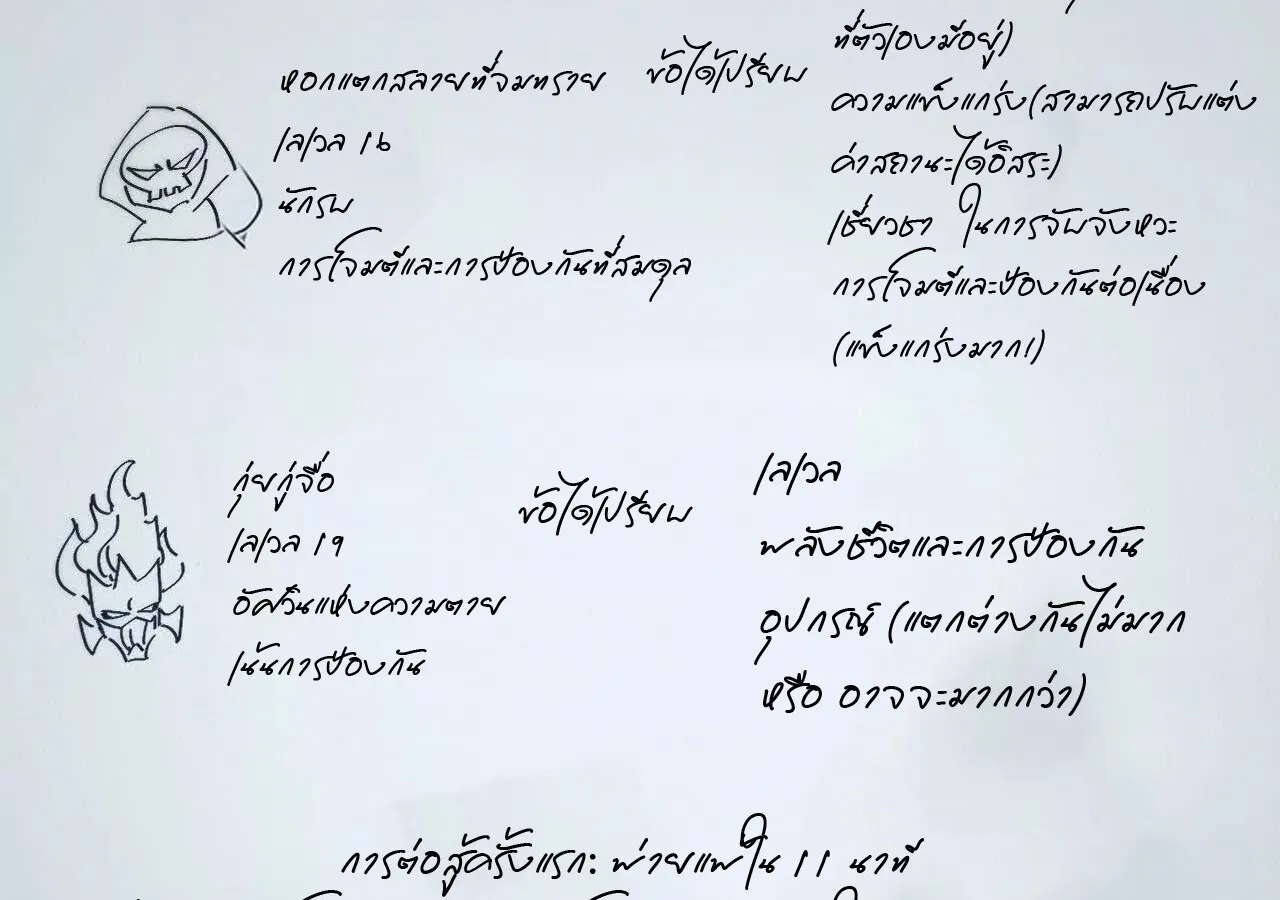 ที่ตัวเองมีอยู่)
หอกแตกสลายที่จมทราย
ข้อได้เปรียบ
ความแข็งแกร่ง(สามารถปรับแต่ง
ค่าสถานะได้อิสระ)
เลเวล 16
นักรบ
เชี่ยวชา ในการจับจังหวะ
การโจมตีและการป้องกันที่สมดุล
การโจมตีและป้องกันต่อเนื่อง
(แข็งแกร่งมาก!)
กุ่ยกู่จื่อ
ข้อได้เปรียบ
เลเวล
เลเวล 19
พลังชีวิตและการป้องกัน
อัศวินแห่งความตาย
อุปกรณ์ (แตกต่างกันไม่มาก
เน้นการป้องกัน
หรือ อาจจะมากกว่า)
การต่อสู้ครั้งแรก: พ่ายแพ้ใน 11 นาที